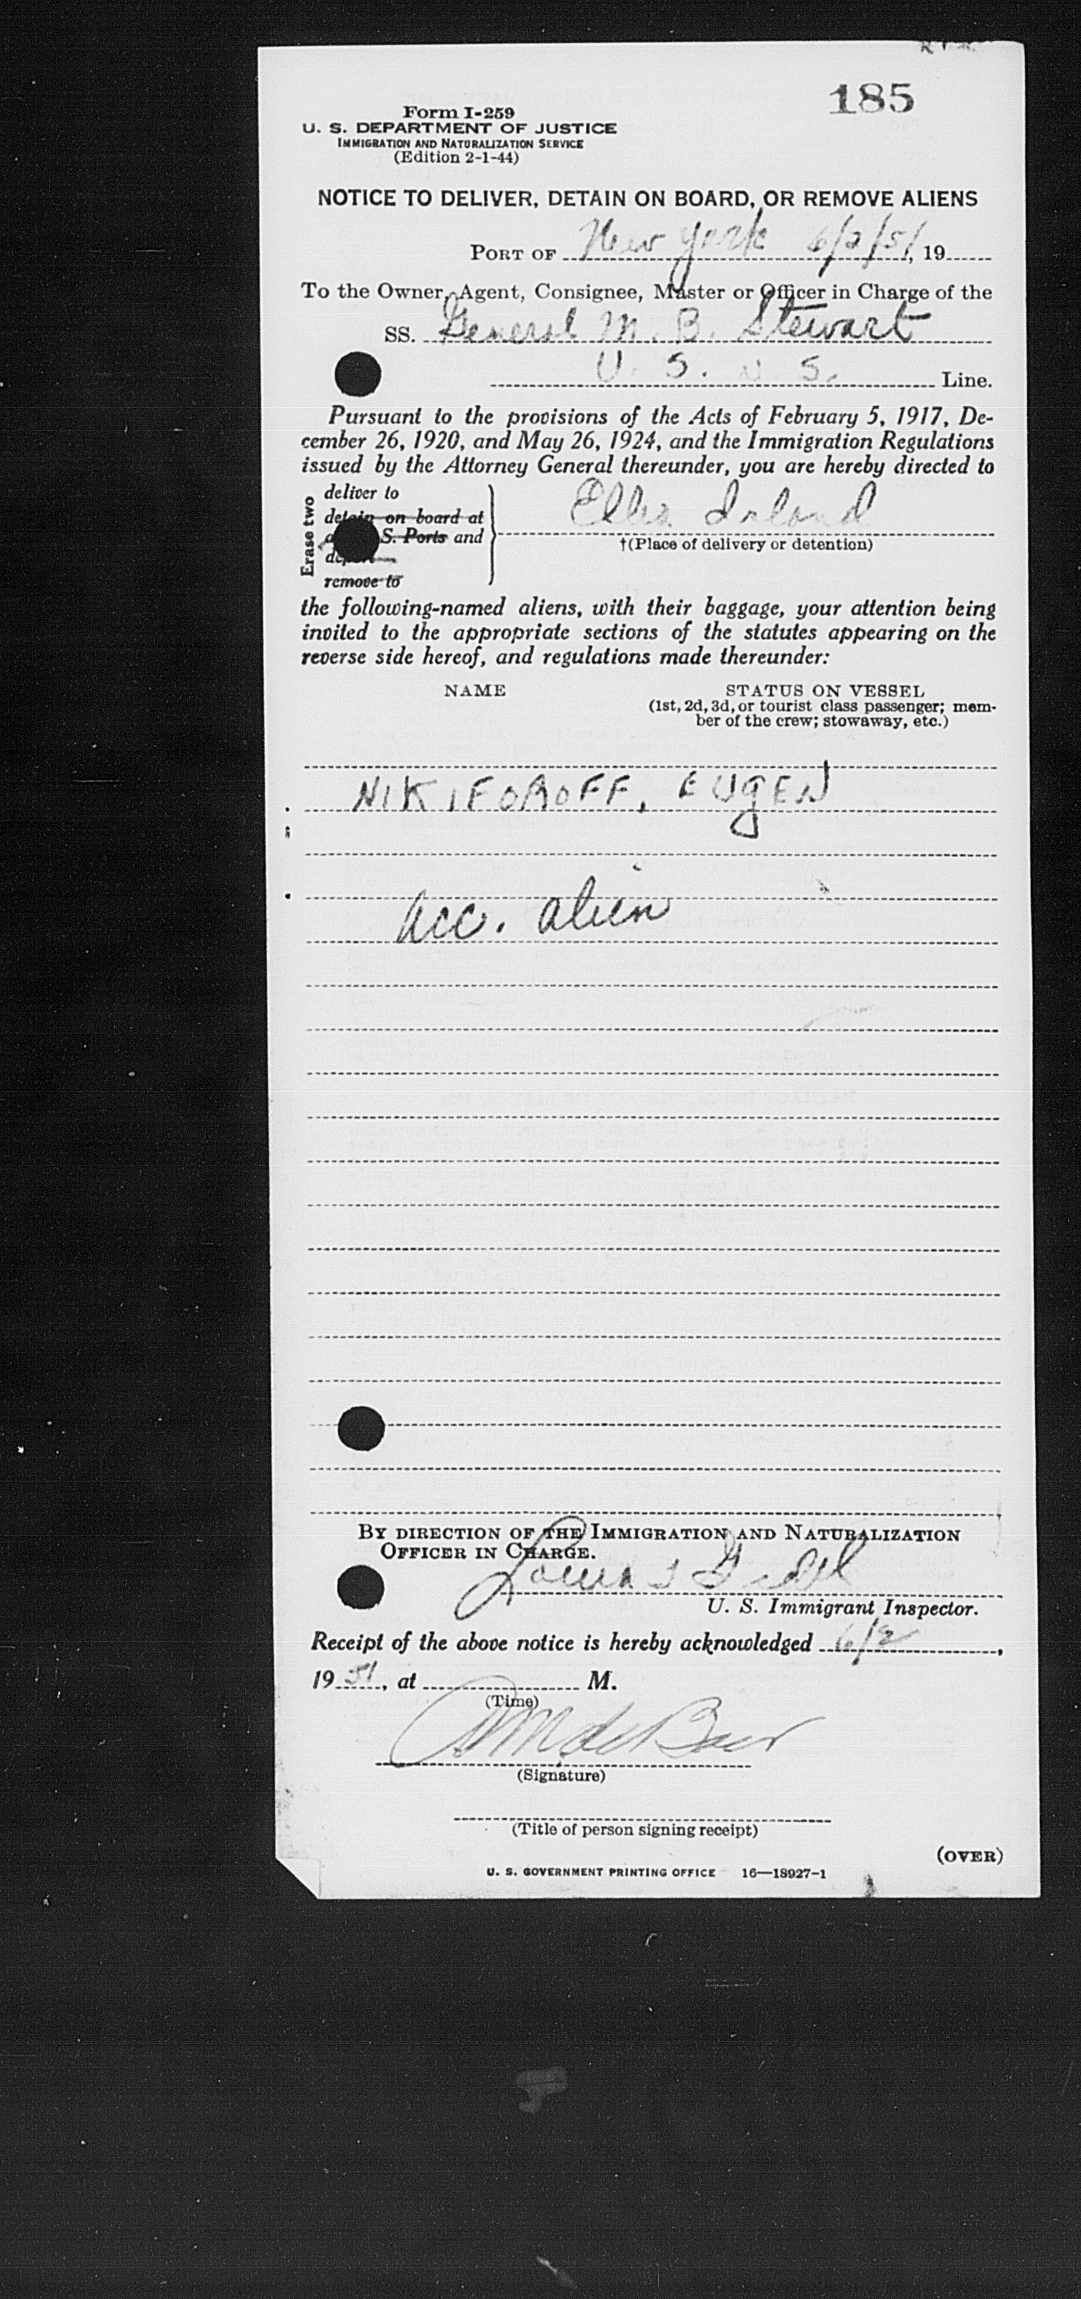 185
Form I-259
U. S. DEPARTMENT OF JUSTICE
IMMIGRATION AND NATURALIZATION SERVICE
(Edition 2-1-44)
NOTICE TO DELIVER, DETAIN ON BOARD, OR REMOVE ALIENS
PORT OF New York 6/2/51, 19
To the Owner, Agent, Consignee, Master or Officer in Charge of the
SS. General M. B. Stewart
U. S. N. S. Line.
Pursuant to the provisions of the Acts of February 5, 1917, De-
cember 26, 1920, and May 26, 1924, and the Immigration Regulations
issued by the Attorney General thereunder, you are hereby directed to
Erase two
deliver to
detain on board at
S. Ports and
remove to
Ellis Island
†(Place of delivery or detention)
the following-named aliens, with their baggage, your attention being
invited to the appropriate sections of the statutes appearing on the
reverse side hereof, and regulations made thereunder:
NAME STATUS ON VESSEL
(1st, 2d, 3d, or tourist class passenger; mem-
ber of the crew; stowaway, etc.)
NIKIFOROFF, EUGEN
acc. alien
BY DIRECTION OF THE IMMIGRATION AND NATURALIZATION
OFFICER IN CHARGE.
U. S. Immigrant Inspector.
Receipt of the above notice is hereby acknowledged 6/2,
19 51, at M.
(Time)
(Signature)
(Title of person signing receipt)
(OVER)
U. S. GOVERNMENT PRINTING OFFICE 16—18927-1